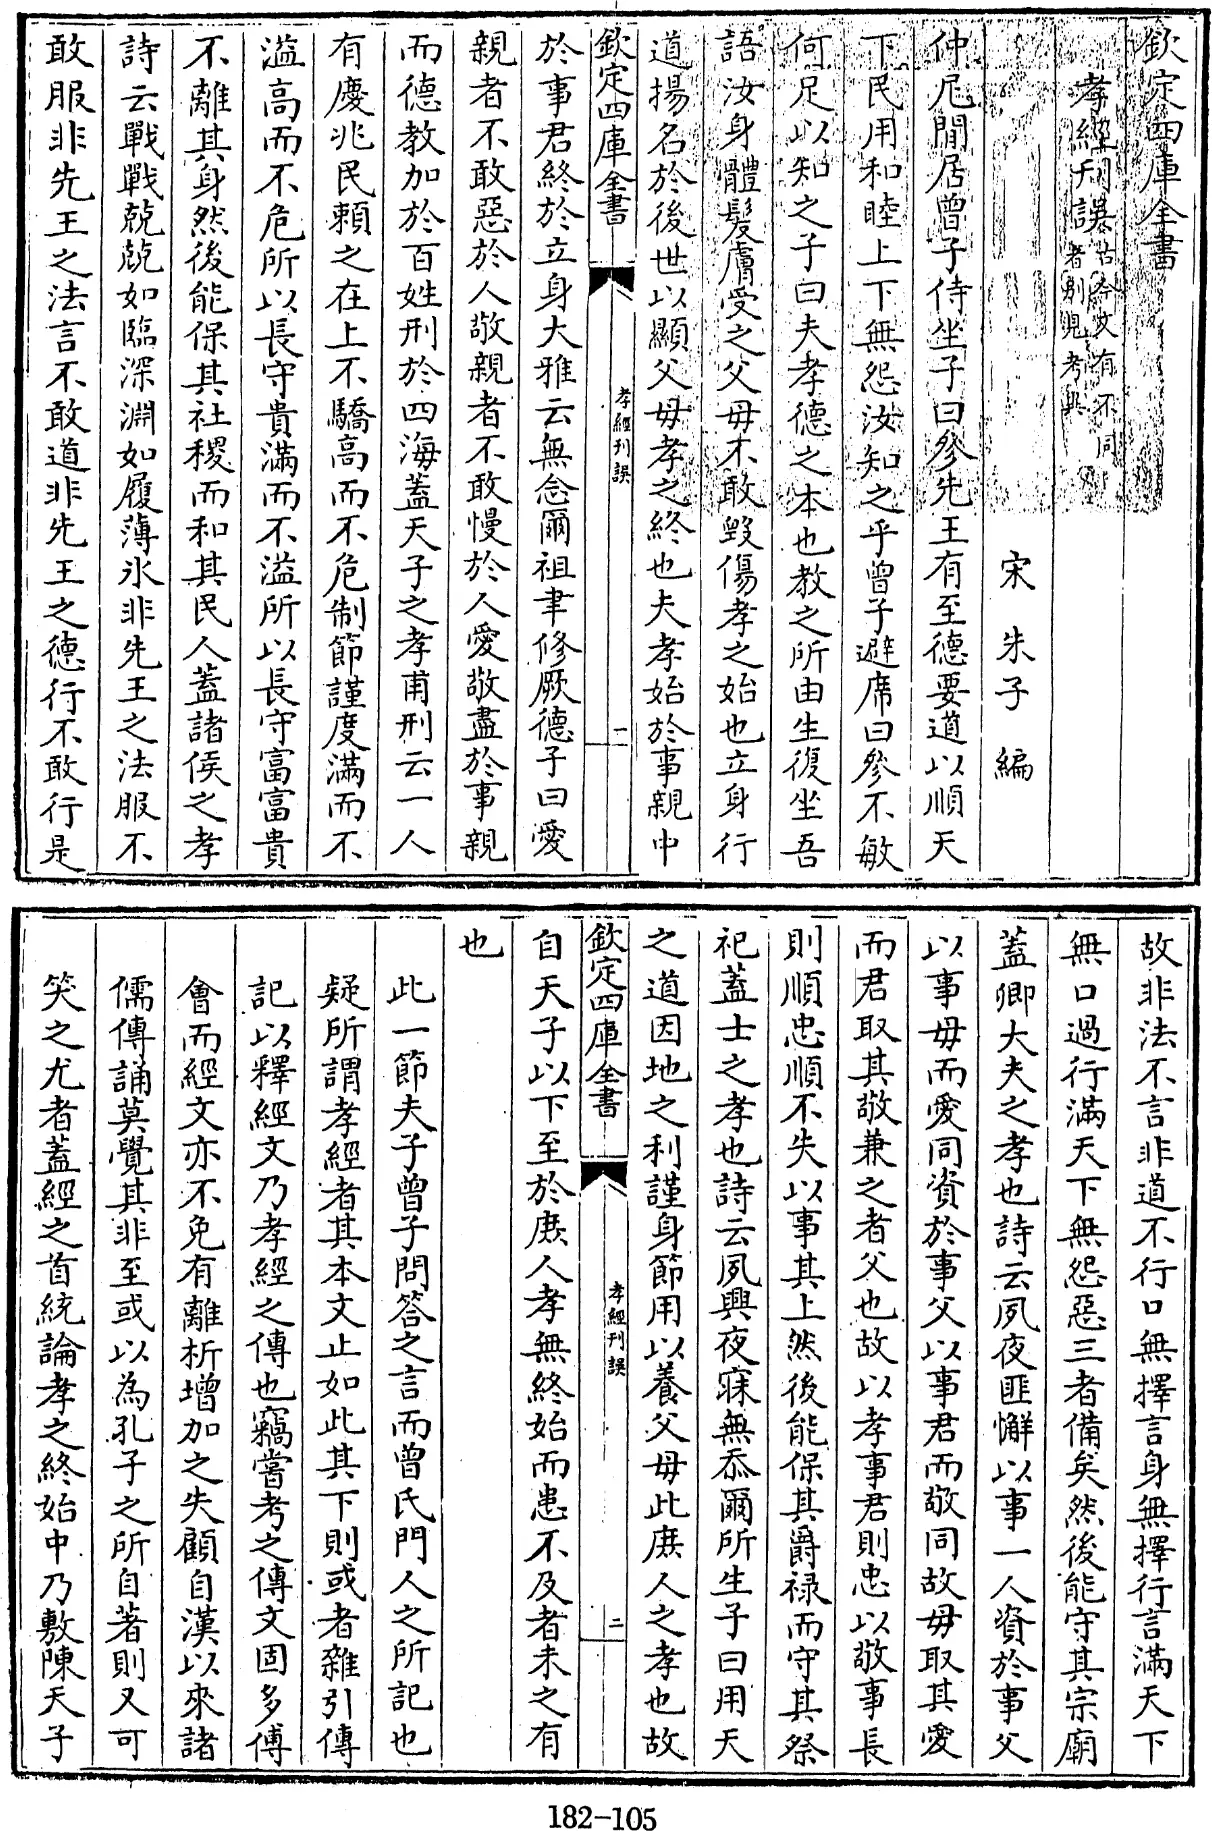 欽定四庫全書
孝經刊誤古今文有不同者別見考異
宋 朱子 編
仲尼閒居曾子侍坐子曰參先王有至德要道以順天
下民用和睦上下無怨汝知之乎曾子避席曰參不敏
何足以知之子曰夫孝德之本也教之所由生復坐吾
語汝身體髮膚受之父母不敢毀傷孝之始也立身行
道揚名於後世以顯父母孝之終也夫孝始於事親中
欽定四庫全書 孝經刊誤 一
於事君終於立身大雅云無念爾祖聿修厥德子曰愛
親者不敢惡於人敬親者不敢慢於人愛敬盡於事親
而德教加於百姓刑於四海蓋天子之孝甫刑云一人
有慶兆民賴之在上不驕高而不危制節謹度滿而不
溢高而不危所以長守貴滿而不溢所以長守富富貴
不離其身然後能保其社稷而和其民人蓋諸侯之孝
詩云戰戰兢兢如臨深淵如履薄氷非先王之法服不
敢服非先王之法言不敢道非先王之德行不敢行是
故非法不言非道不行口無擇言身無擇行言滿天下
無口過行滿天下無怨惡三者備矣然後能守其宗廟
蓋卿大夫之孝也詩云夙夜匪懈以事一人資於事父
以事母而愛同資於事父以事君而敬同故母取其愛
而君取其敬兼之者父也故以孝事君則忠以敬事長
則順忠順不失以事其上然後能保其爵祿而守其祭
祀蓋士之孝也詩云夙興夜寐無忝爾所生子曰用天
之道因地之利謹身節用以養父母此庶人之孝也故
欽定四庫全書 孝經刊誤 二
自天子以下至於庶人孝無終始而患不及者未之有
也
此一節夫子曾子問答之言而曾氏門人之所記也
疑所謂孝經者其本文止如此其下則或者雜引傳
記以釋經文乃孝經之傳也竊嘗考之傳文固多傅
會而經文亦不免有離析增加之失顧自漢以來諸
儒傳誦莫覺其非至或以為孔子之所自著則又可
笑之尤者蓋經之首統論孝之終始中乃敷陳天子
182-105